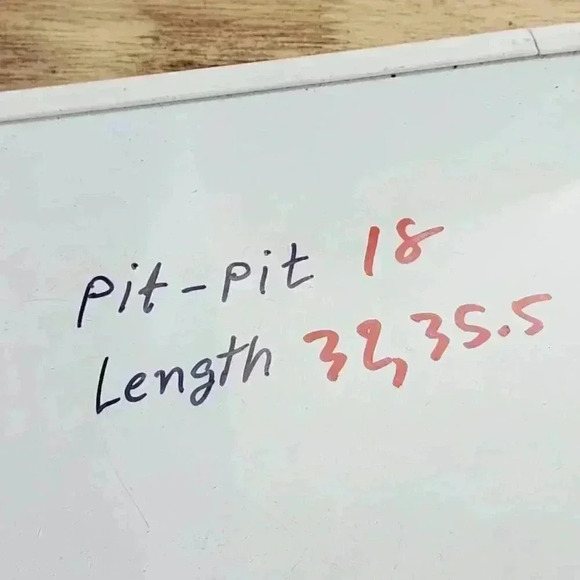 Pit-Pit 18
Length 32,35.5